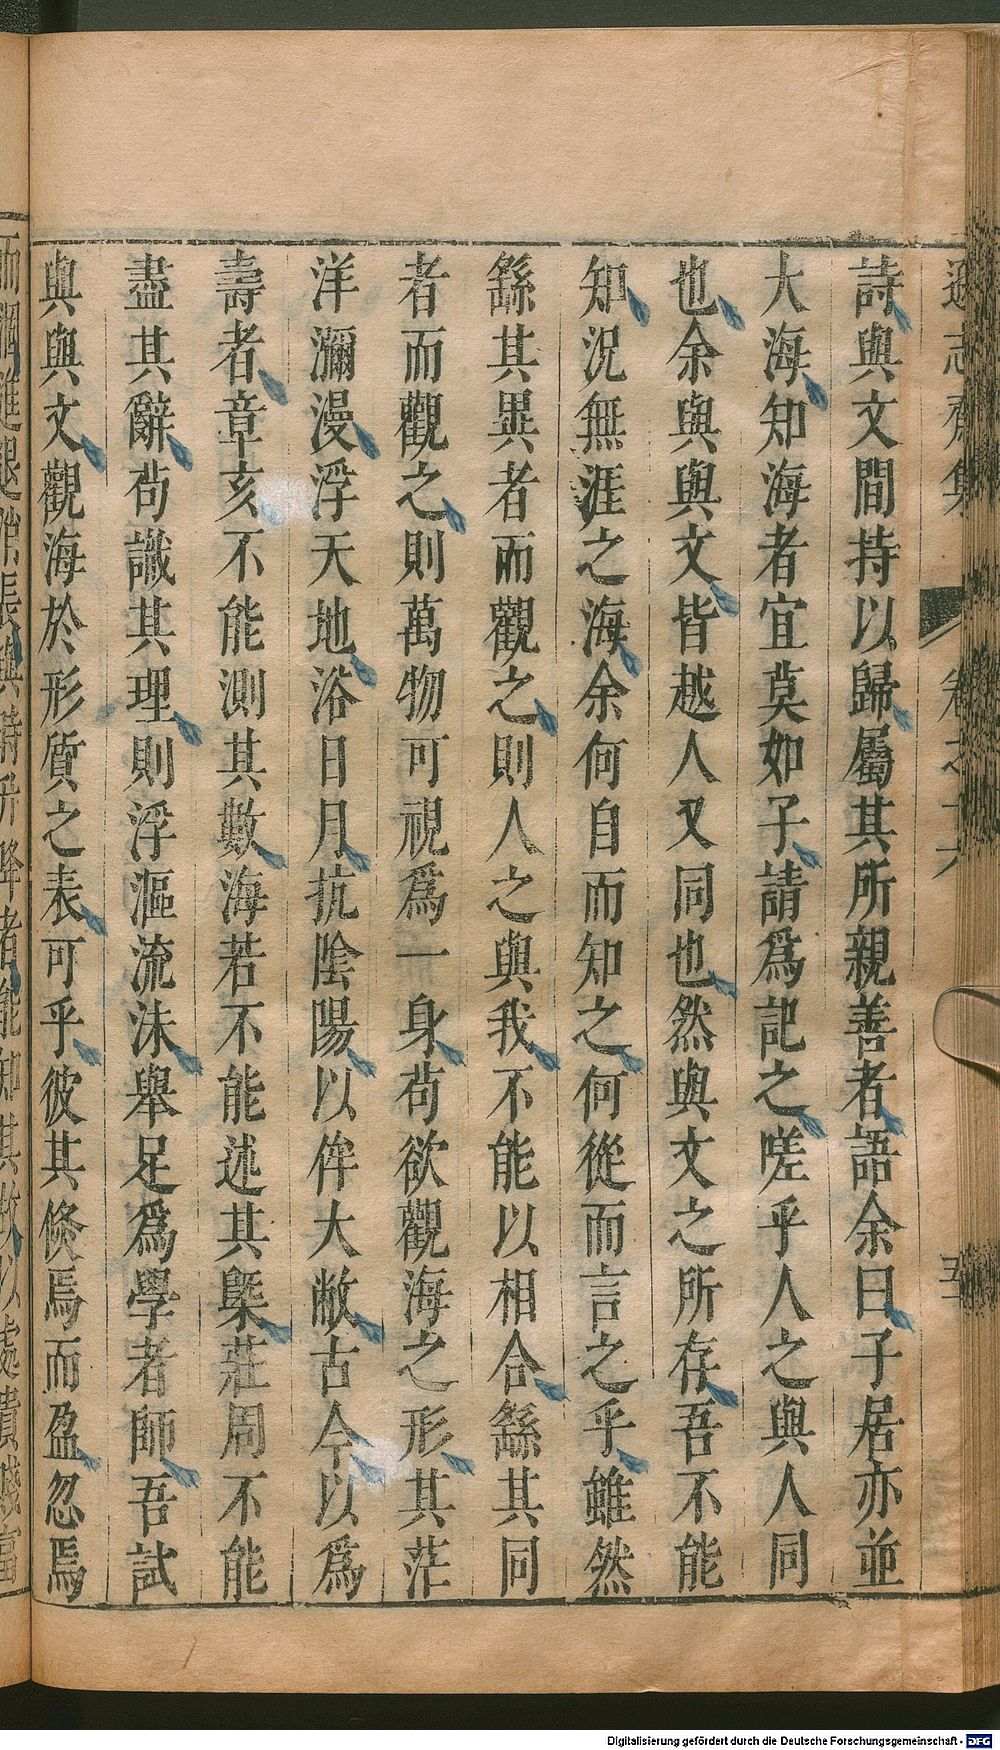 遜志齋集 卷之十六 五
詩與文間持以歸屬其所親善者語余曰子居亦並
大海知海者宜莫如子請爲記之嗟乎人之與人同
也余與與文皆越人又同也然與文之所存吾不能
知況無涯之海余何自而知之何從而言之乎雖然
繇其異者而觀之則人之與我不能以相合繇其同
者而觀之則萬物可視爲一身苟欲觀海之形其茫
洋瀰漫浮天地浴日月抗陰陽以侔大敝古今以爲
壽者章亥不能測其數海若不能述其槩莊周不能
盡其辭苟識其理則浮漚流沫舉足爲學者師吾試
與與文觀海於形質之表可乎彼其倐焉而盈忽焉
Digitalisierung gefördert durch die Deutsche Forschungsgemeinschaft - DFG